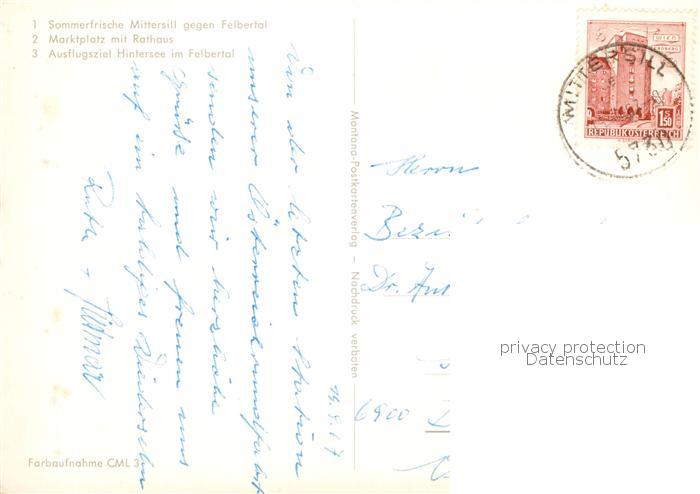 1 Sommerfrische Mittersill gegen Felbertal
2 Marktplatz mit Rathaus
3 Ausflugsziel Hintersee im Felbertal
19.8.67
Von der letzten Station
unserer Österreichrundfahrt
senden wir herzliche
Grüße und freuen uns
auf ein baldiges Wiedersehn
Ruth +
Montana-Postkartenverlag – Nachdruck verboten
Farbaufnahme CML 3
WIEN
1.50
REPUBLIK ÖSTERREICH
MITTERSILL
5730
Herrn
Dr.
6900
privacy protection
Datenschutz